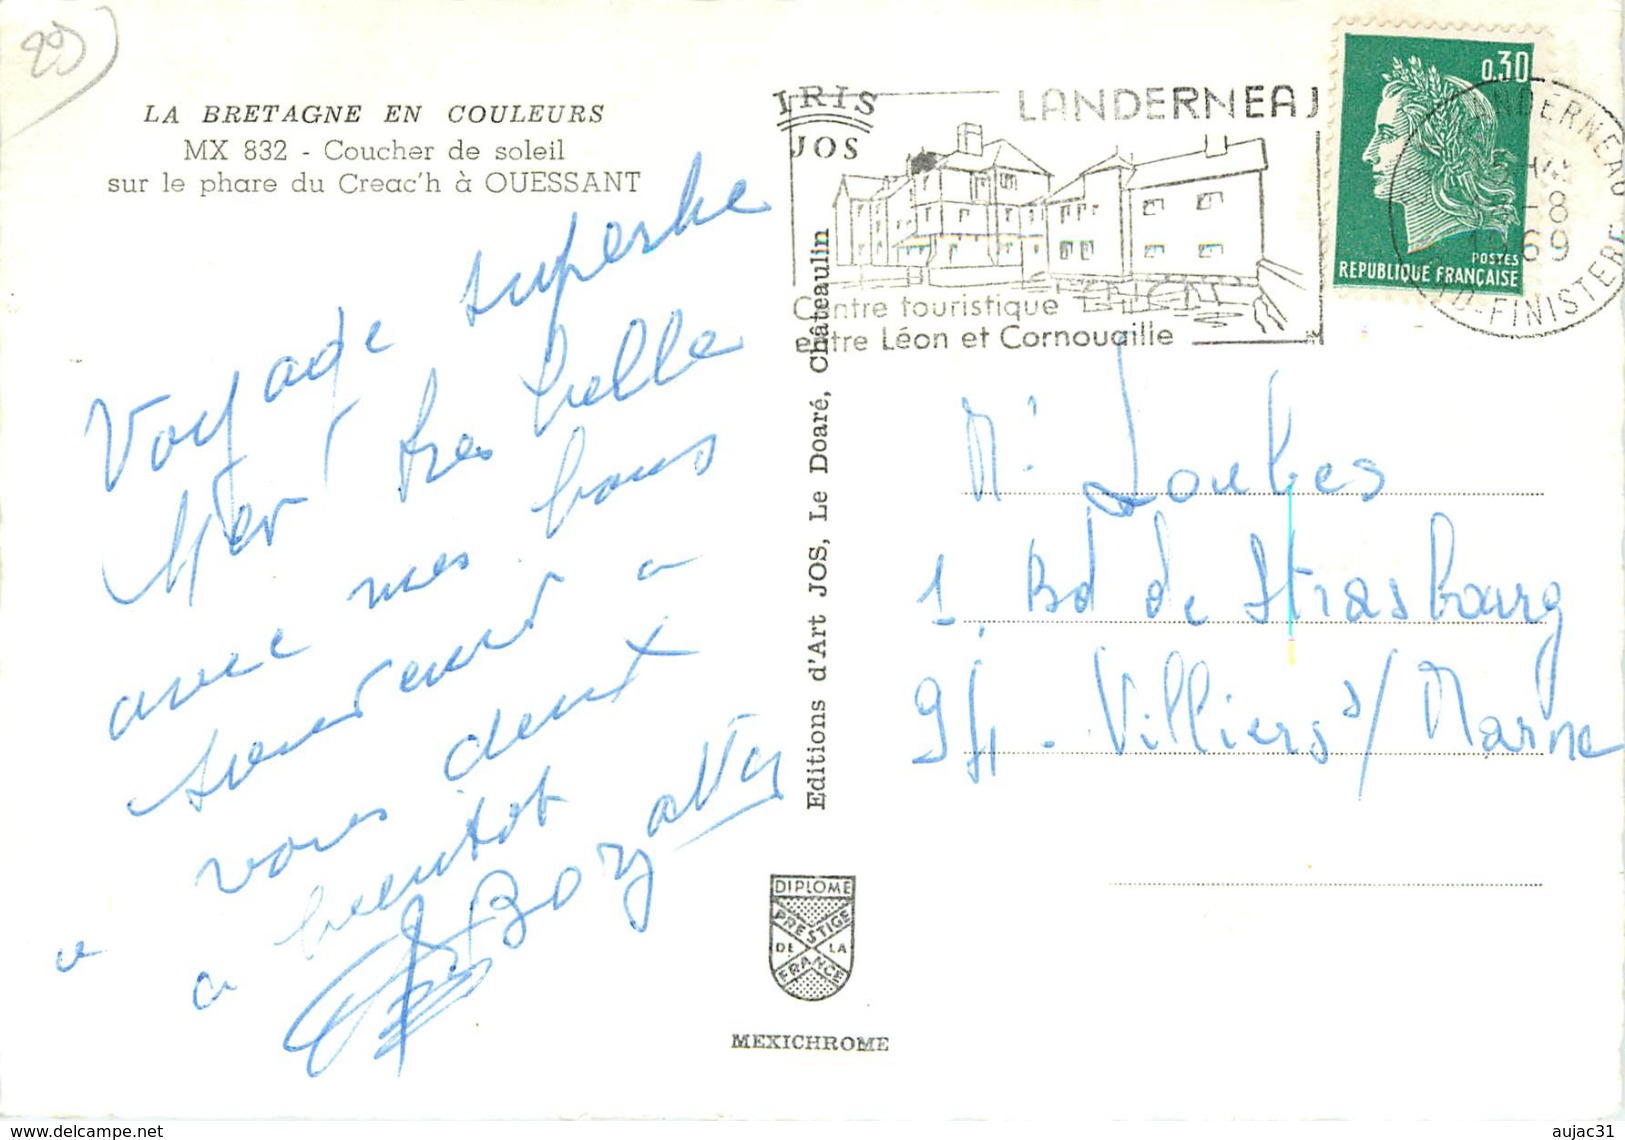 29
LA BRETAGNE EN COULEURS
MX 832 - Coucher de soleil
sur le phare du Creac'h à OUESSANT
Voyage superbe
Mer très belle
avec mes bons
souvenirs a
vous deux
a bientot
IRIS
JOS
LANDERNEAU
Centre touristique
entre Léon et Cornouaille
0,30
POSTES
REPUBLIQUE FRANÇAISE
LANDERNEAU
-8
1969
FINISTERE
Editions d'Art JOS, Le Doaré, Châteaulin
Mr Loubes
1, Bd de Strasbourg
94 - Villiers s/ Marne
DIPLOME
PRESTIGE
DE LA
FRANCE
MEXICHROME
delcampe.net
aujac31